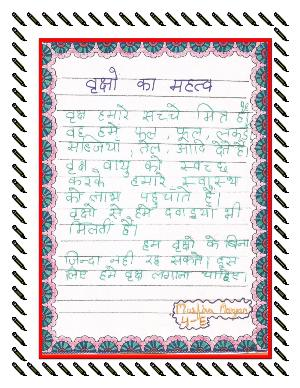 वृक्षो का महत्व
वृक्ष हमारे सच्चे मित्र है।
वह हमे फल, फूल, लकड़ी
सब्जियाँ, तेल, आदि देते है।
वृक्ष वायु को स्वच्छ
करके हमारे स्वास्थ
को लाभ पहुचाते है।
वृक्षो से हमे दवाइया भी
मिलती है।
हम वृक्षो के बिना
ज़िन्दा नही रह सकते। इस
लिए हमे वृक्ष लगाना चाहिए।
4-E